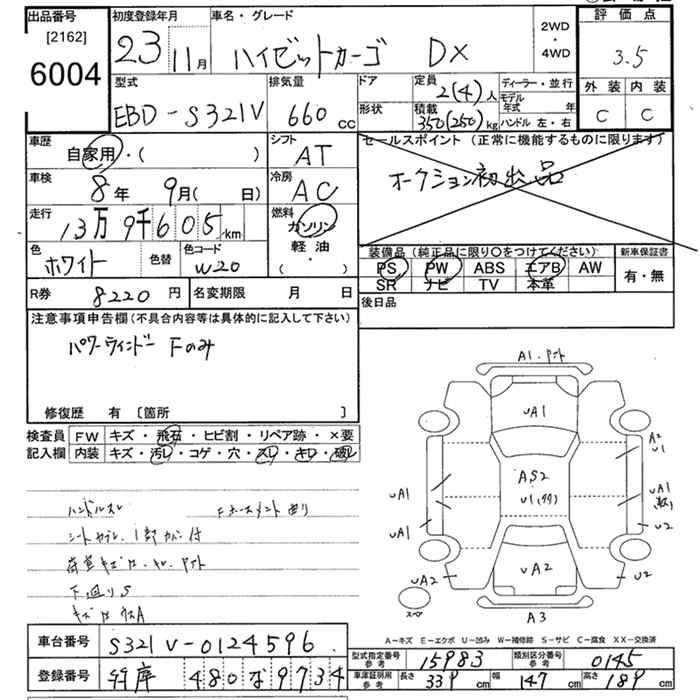 出品番号
[2162]
6004
初度登録年月
23 11月
車名・グレード
ハイゼットカーゴ DX
2WD
・
4WD
評価点
3.5
外装 内装
C C
型式
EBD-S321V
排気量
660 cc
ドア
形状
定員
2(4)人
積載
350(250)kg
ディーラー・並行
モデル年式 年
ハンドル 左・右
車歴
自家用・( )
シフト
AT
車検
8年 9月( 日)
冷房
AC
走行
13万9千605km
燃料
ガソリン
軽油
・( )
色
ホワイト
色替
色コード
W20
セールスポイント (正常に機能するものに限ります)
オークション初出品
装備品 (純正品に限り〇をつけてください)
PS PW ABS エアB AW
SR ナビ TV 本革
新車保証書
有・無
R券 8220円
名変期限 月 日
後日品
注意事項申告欄(不具合内容等は具体的に記入して下さい)
パワーウィンドー Fのみ
修復歴 有 [箇所 ]
検査員記入欄
FW キズ・飛石・ヒビ割・リペア跡・×要
内装 キズ・汚レ・コゲ・穴・スレ・キレ・破レ
ハンドルスレ
下廻りS
A1
UA1
A2
U1
AS2
UA1
UA1
UA1
U2
UA2
UA2
U2
A3
A-キズ E-エクボ U-凹み W-補修跡 S-サビ C-腐食 XX-交換済
車台番号 S321V-0124596
登録番号 480な9734
型式指定番号 参考 15983
類別区分番号 参考 0145
車庫証明用 参考
長さ 339cm
幅 147cm
高さ 189cm